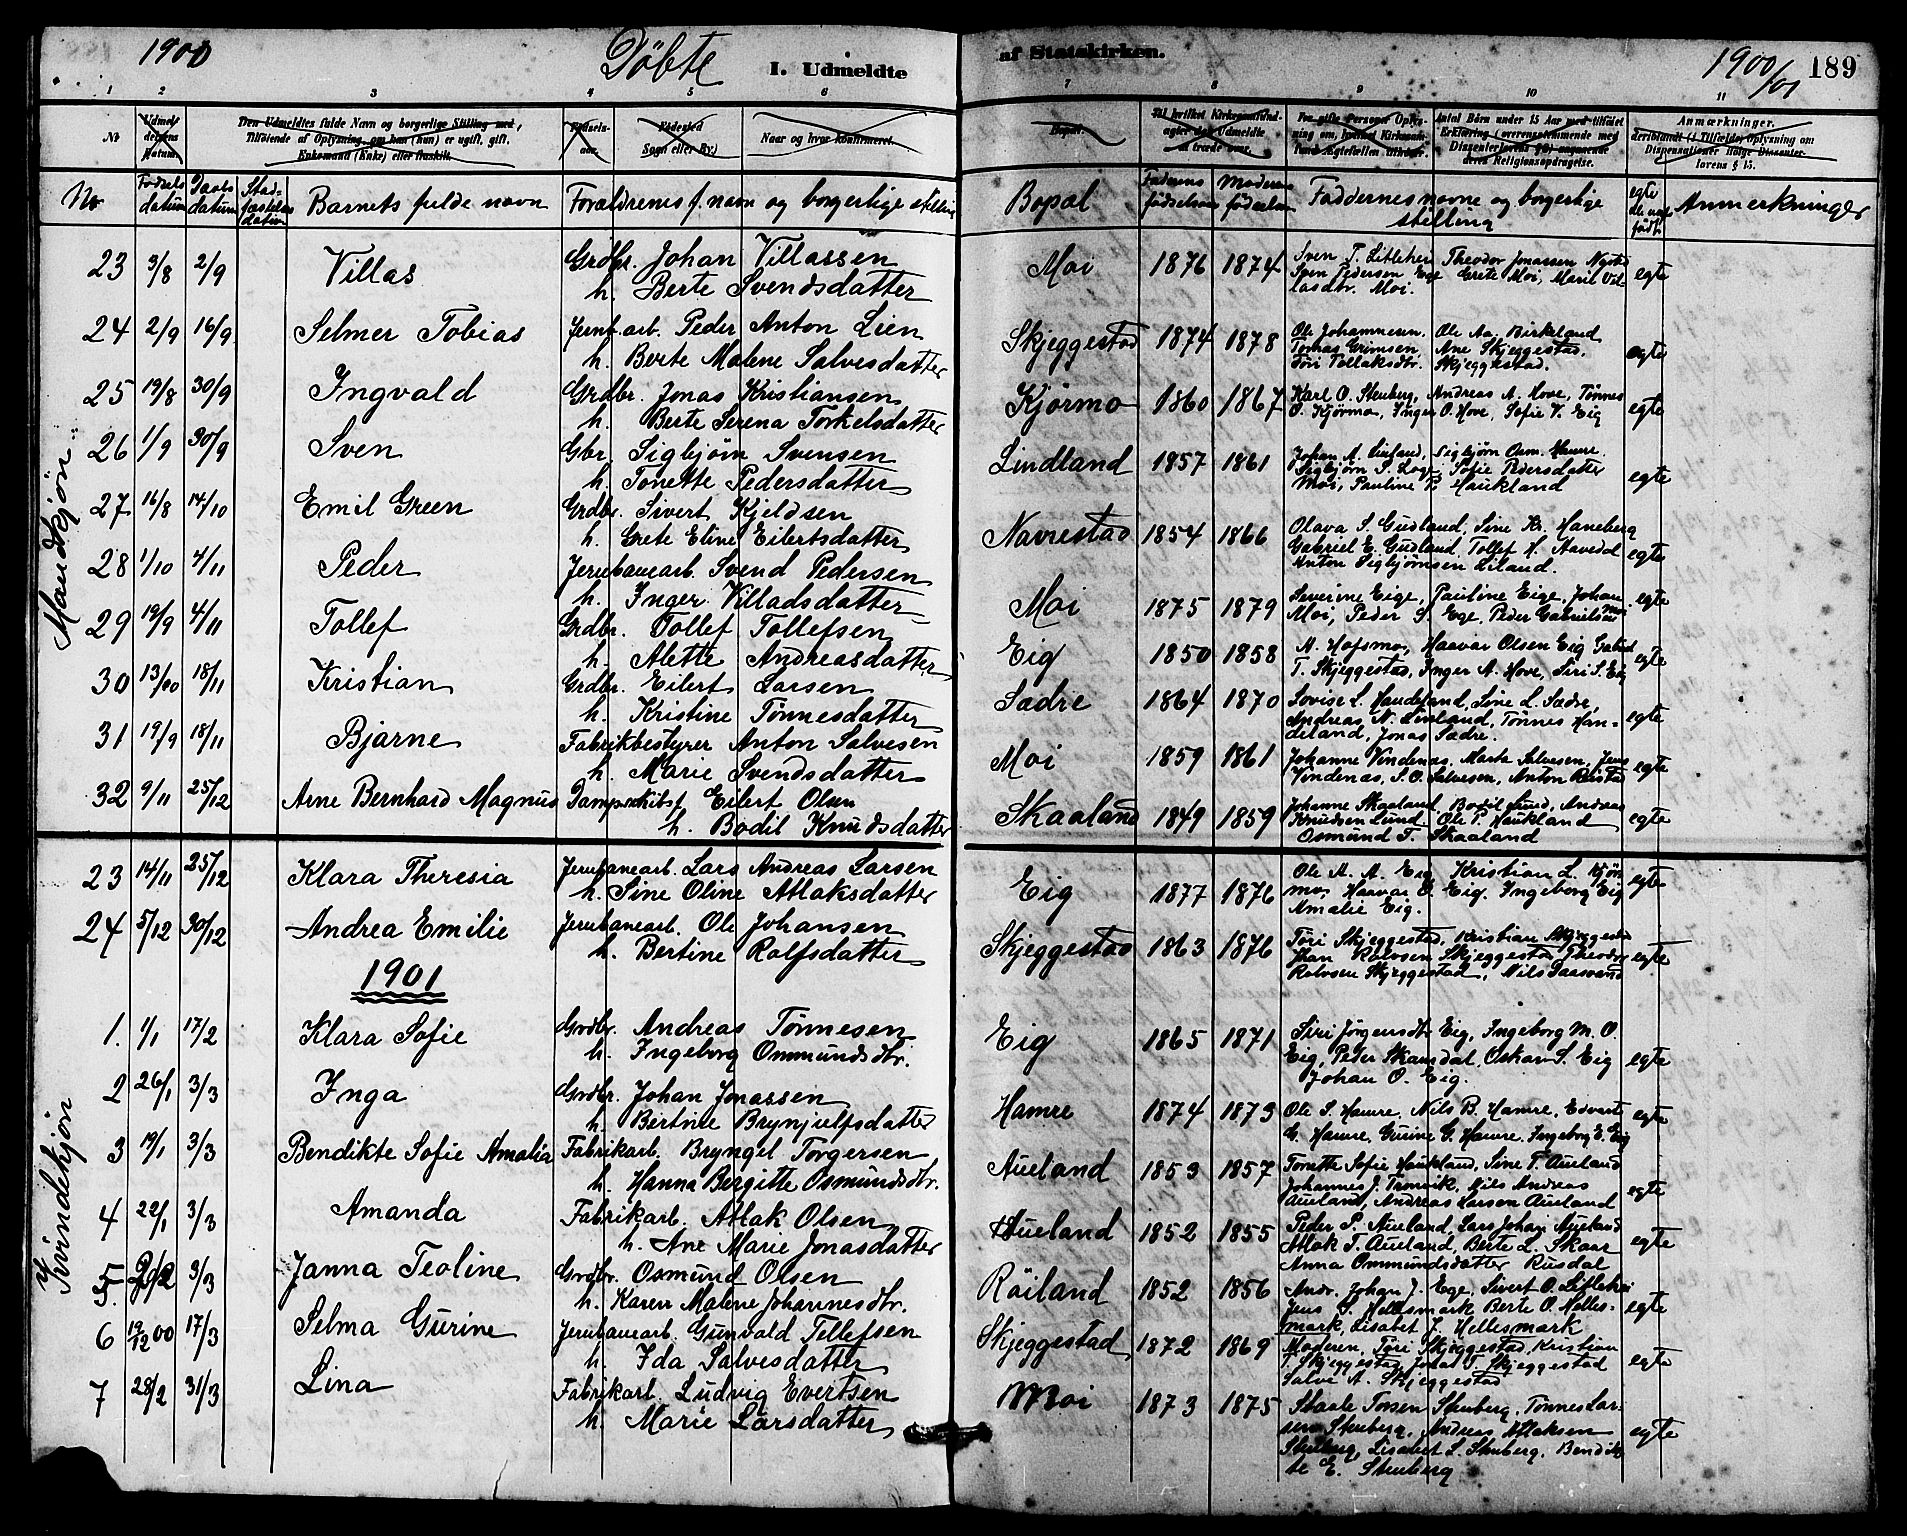 1900 Döbte I. Udmeldte af Statskirken. 1900/01 189
1 2 3 4 5 6 7 8 9 10 11
No Fødsels datum Daabs datum Stadfæstelses datum Barnets fulde navn Forældrenes f. navn og borgerlige stilling Bopæl Faderens fødselsaar Moderens fødselsaar Faddernes navne og borgerlige stilling egte el. uegte født Anmerkninger
Mandkjön
23 3/8 2/9 Villas Grdbr. Johan Villassen Moi 1876 1874 Sven T. Litlehei Theodor Jonassen Nysted egte
h. Berte Svendsdatter Sven Pedersen Ege Grete Moi, Maril Vil-
lasdtr. Moi.
24 2/9 16/9 Selmer Tobias Jernb.arb. Peder Anton Lien Skjeggestad 1874 1878 Ole Johannesen. Ole Aa. Birkeland egte
h. Berte Malene Salvesdatter Tomas Grimsen. Ane Skjeggestad.
Töri Tollaksdtr. Skjeggestad.
25 19/8 30/9 Ingvald Grdbr. Jonas Kristiansen Kjörmo 1860 1867 Karl O. Stenberg, Andreas A. Hove, Tönnes egte
h. Berte Serena Torkelsdatter O. Kjörmo, Inger O. Hove, Sofie V. Eig
26 1/9 30/9 Sven Gbr. Sigbjörn Svensen Lindland 1857 1861 Johan A. Liland, Sigbjörn Osm. Hamre. egte
h. Tonette Pedersdatter Sigbjörn S. Loge, Sofie Pedersdatter
Moi, Pauline P. Haukland
27 16/8 14/10 Emil Green Grdbr. Sivert Kjeldsen Navrestad 1854 1866 Olava S. Gudland, Sine Kr. Haneberg egte
h. Grete Eline Eilertsdatter Gabriel E. Gudland, Tollef H. Aavedal
Anton Sigbjörnsen Liland.
28 1/10 4/11 Peder Jernbanearb. Svend Pedersen Moi 1875 1879 Severine Eige, Pauline Eige, Johan egte
h. Inger Villadsdatter Moi, Peder S. Ege, Peder Gabrielsen Moi
29 19/9 4/11 Tollef Grdbr. Tollef Tollefsen Eig 1850 1858 A. Hofsmo, Haavar Olsen Eig egte
h. Alette Andreasdatter T. Skjeggestad, Inger A. Hove, Siri S. Eig
30 13/10 18/11 Kristian Grdbr. Eilert Larsen Sædre 1864 1870 Lovise L. Handeland, Sine L. Sædre, egte
h. Kristine Tönnesdatter Andreas N. Linland, Tönnes Han-
deland, Jonas Sædre.
31 19/9 18/11 Bjarne Fabrikbestyrer Anton Salvesen Moi 1859 1861 Johanne Vindenæs, Marta Salvesen, Jens egte
h. Marie Svendsdatter Vindenæs, S. O. Salvesen, Anton
32 9/11 25/12 Arne Bernhard Magnus Dampskibsf Eilert Olsen Skaaland 1849 1859 Johanne Skaaland Bodil Lund, Andreas egte
h. Bodil Knudsdatter Knudsen Lund Ole P. Haukland
Osmund T. Skaaland
Kvindekjön
23 14/11 25/12 Klara Theresia Jernbanearb. Lars Andreas Larsen Eig 1877 1876 Ole A. A. Eig Kristian L. Kjör- egte
h. Sine Oline Atlaksdatter mo, Haavar O. Eig, Ingeborg Eig
Amalie Eig.
24 5/12 30/12 Andrea Emilie Jernbanearb. Ole Johansen Skjeggestad 1863 1876 Töri Skjeggestad, Kristian Skjeggestad egte
h. Bertine Rolfsdatter Rolvsen Skjeggestad Theodor
Rolvsen Skjeggestad, Nils
1901
1. 1/1 17/2 Klara Sofie Grdbr. Andreas Tönnesen Eig 1865 1871 Siri Jörgensdtr Eig, Ingeborg M. O. egte
h. Ingeborg Ommundsdtr. Eig, Peder Skansdal, Oskar S. Eig
Johan O. Eig.
2 26/1 3/3 Inga Grdbr. Johan Jonassen Hamre 1874 1873 Ole S. Hamre, Nils B. Hamre, Edvart egte
h. Bertine Brynjulfsdatter G. Hamre, Gurine G. Hamre, Ingeborg E. Eig
3 19/1 3/3 Bendikte Sofie Amalia Fabrikarb. Bryngel Torgersen Aueland 1853 1857 Tonette Sofie Haukland, Sine T. Aueland egte
h. Hanna Bergitte Osmundsdtr. Johannes J. Tronvik, Nils Andreas
Aueland, Andreas Larson Aueland
4 22/1 3/3 Amanda Fabrikarb. Atlak Olsen Aueland 1852 1855 Peder P. Aueland, Lars Johan Aueland egte
h. Ane Marie Jonasdatter Atlak T. Aueland, Berte L. Skaar
Anna Ommundsdatter Rusdal
5 3/3 Janna Teoline Grdbr. Osmund Olsen Röiland 1852 1856 Andr. Johan J. Ege, Sivert O. Litlehei egte
5. h. Karen Malene Johannesdtr. Jens S. Hellesmark Berte O. Helles-
mark, Lisabet J. Hellesmark
6 19/12 00 17/3 Selma Gurine Jernbanearb. Gunvald Tellefsen Skjeggestad 1872 1869 Moderen, Töri Skjeggestad, Kristian egte
h. Ida Salvesdatter T. Skjeggestad, Jonas T. Skjeggestad
Salve A. Skjeggestad
7 28/2 31/3 Lina Fabrikarb. Ludvig Evertsen Moi 1873 1875 Staale Torsen Stenberg, Tönnes Lar- egte
h. Marie Larsdatter sen Stenberg, Andreas Atlaksen
Stenberg, Lisabet L. Stenberg, Bendik-
te E. Stenberg